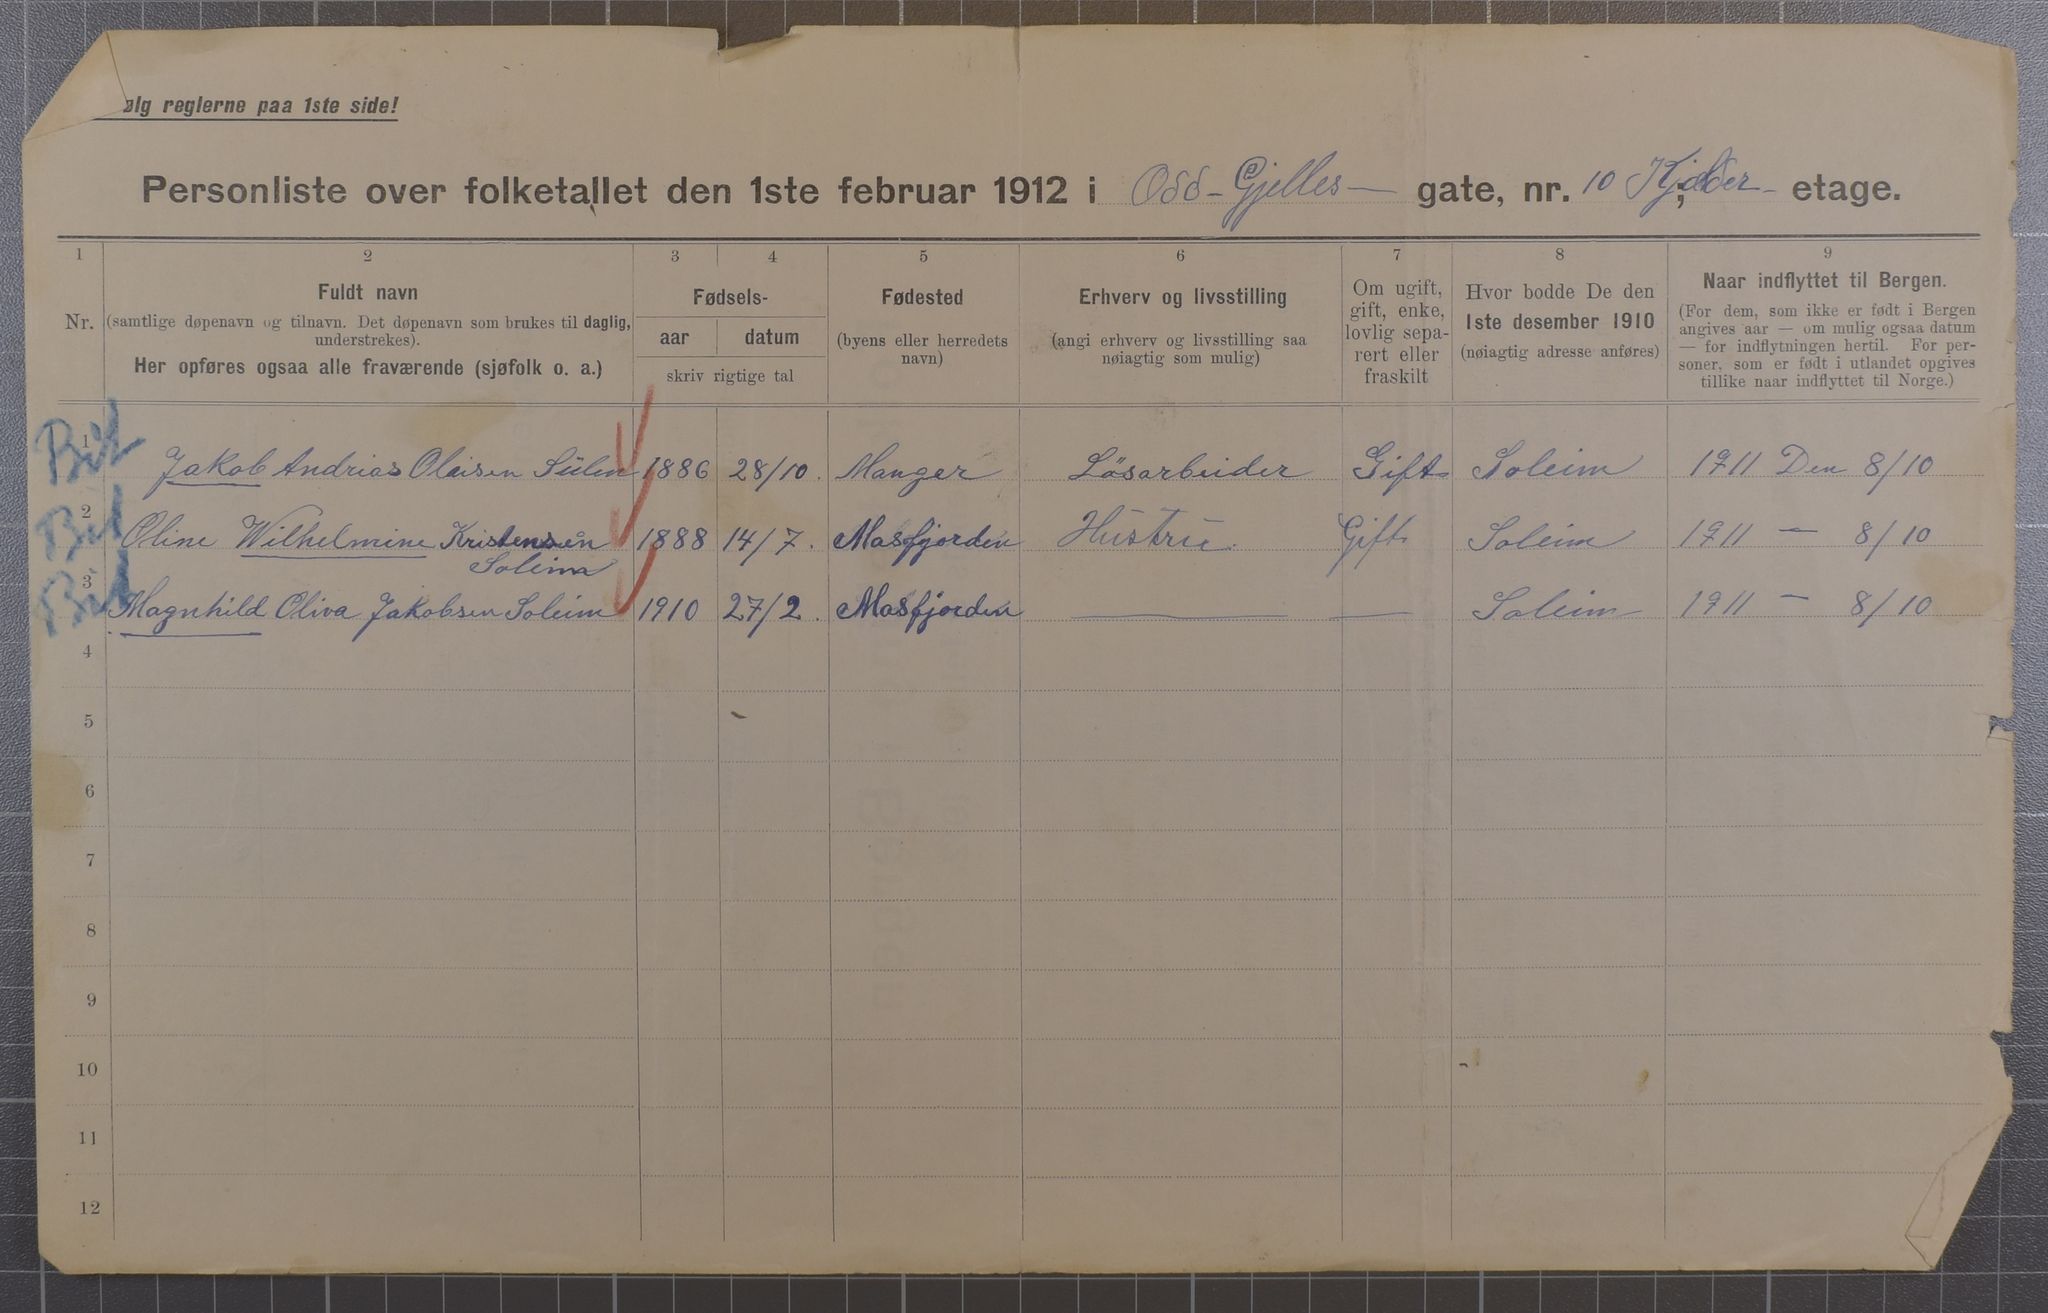 ølg reglerne paa 1ste side!
Personliste over folketallet den 1ste februar 1912 i Odd-Gjelles- gate, nr. 10, Kjelder- etage.
1 2 3 4 5 6 7 8 9
Nr.
Fuldt navn
(samtlige døpenavn og tilnavn. Det døpenavn som brukes til daglig,
understrekes).
Her opføres ogsaa alle fraværende (sjøfolk o. a.)
Fødsels-
aar datum
skriv rigtige tal
Fødested
(byens eller herredets
navn)
Erhverv og livsstilling
(angi erhverv og livsstilling saa
nøiagtig som mulig)
Om ugift,
gift, enke,
lovlig sepa-
rert eller
fraskilt
Hvor bodde De den
1ste desember 1910
(nøiagtig adresse anføres)
Naar indflyttet til Bergen.
(For dem, som ikke er født i Bergen
angives aar — om mulig ogsaa datum
— for indflytningen hertil. For per-
soner, som er født i utlandet opgives
tillike naar indflyttet til Norge.)
Bil 1 Jakob Andrias Olaisen 1886 28/10. Manger Lösarbeider Gift Soleim 1911 Den 8/10
Bil 2 Oline Wilhelmine Kristensen 1888 14/7. Masfjorden Hustru. Gift Soleim 1911 — 8/10
Soleim
Bil 3 Magnhild Oliva Jakobsen Soleim 1910 27/2. Masfjorden — — Soleim 1911 — 8/10
4
5
6
7
8
9
10
11
12